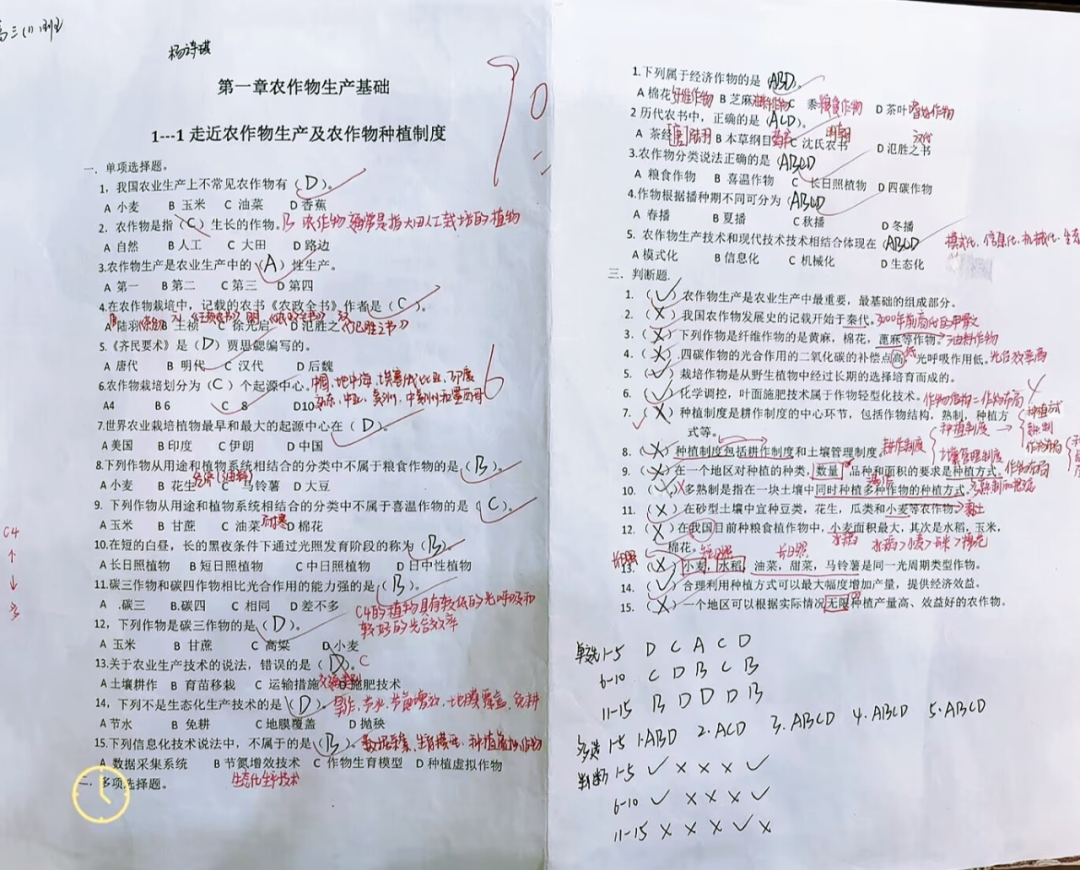 高三(1)班
第一章农作物生产基础
90
1---1 走近农作物生产及农作物种植制度
一．单项选择题。
1，我国农业生产上不常见农作物有（D）。
A 小麦 B 玉米 C 油菜 D 香蕉
2．农作物是指（C）生长的作物。B 农作物通常是指大田人工栽培的植物
A 自然 B 人工 C 大田 D 路边
3.农作物生产是农业生产中的（A）性生产。
A 第一 B 第二 C 第三 D 第四
4.在农作物栽培中，记载的农书《农政全书》作者是（C）。
A 陆羽 B 王祯 C 徐光启 D 氾胜之
5.《齐民要术》是（D）贾思勰编写的。
A 唐代 B 明代 C 汉代 D 后魏
6.农作物栽培划分为（C）个起源中心。
A4 B 6 C 8 D10
7.世界农业栽培植物最早和最大的起源中心在（D）。
A 美国 B 印度 C 伊朗 D 中国
8.下列作物从用途和植物系统相结合的分类中不属于粮食作物的是（B）。
A 小麦 B 花生 C 马铃薯 D 大豆
9．下列作物从用途和植物系统相结合的分类中不属于喜温作物的是（C）。
A 玉米 B 甘蔗 C 油菜 耐寒 D 棉花
10.在短的白昼，长的黑夜条件下通过光照发育阶段的称为（B）。
A 长日照植物 B 短日照植物 C 中日照植物 D 日中性植物
11.碳三作物和碳四作物相比光合作用的能力强的是（B）。
A .碳三 B.碳四 C 相同 D 差不多
C4的植物具有较低的光呼吸和
较好的光合效率
12，下列作物是碳三作物的是（D）。
A 玉米 B 甘蔗 C 高粱 D 小麦
13.关于农业生产技术的说法，错误的是（D）。C
A 土壤耕作 B 育苗移栽 C 运输措施 D 施肥技术
14，下列不是生态化生产技术的是（D）。
A 节水 B 免耕 C 地膜覆盖 D 抛秧
15.下列信息化技术说法中，不属于的是（B）。
A 数据采集系统 B 节氮增效技术 C 作物生育模型 D 种植虚拟作物
生态化生产技术
二．多项选择题。
C4
1.下列属于经济作物的是（ABD）。
A 棉花 纤维作物 B 芝麻 油料作物 C 黍 粮食作物 D 茶叶 嗜好作物
2 历代农书中，正确的是（ACD）。
A 茶经 唐 陆羽 B 本草纲目 C 沈氏农书 D 氾胜之书 汉代
3.农作物分类说法正确的是（ABCD）
A 粮食作物 B 喜温作物 C 长日照植物 D 四碳作物
4.作物根据播种期不同可分为（ABCD）
A 春播 B 夏播 C 秋播 D 冬播
5．农作物生产技术和现代技术技术相结合体现在（ABCD） 模式化、信息化、机械化、生态
A 模式化 B 信息化 C 机械化 D 生态化
三．判断题.
1．（✓）农作物生产是农业生产中最重要，最基础的组成部分。
2．（×）我国农作物发展史的记载开始于秦代。
3．（×）下列作物是纤维作物的是黄麻，棉花，蓖麻等作物。油料作物
4．（×）四碳作物的光合作用的二氧化碳的补偿点高 低，光呼吸作用低。光合效率高
5．（✓）栽培作物是从野生植物中经过长期的选择培育而成的。
6．（✓）化学调控，叶面施肥技术属于作物轻型化技术。
7．（×）种植制度是耕作制度的中心环节，包括作物结构，熟制，种植方
式等。
8．（×）种植制度包括耕作制度和土壤管理制度。 耕作制度 种植制度 土壤管理制度
9．（×）在一个地区对种植的种类，数量，品种和面积的要求是种植方式。作物布局
10．（✓）多熟制是指在一块土壤中同时种植多种作物的种植方式。
11．（×）在砂型土壤中宜种豆类，花生，瓜类和小麦等农作物。黏土
12．（×）在我国目前种粮食植作物中，小麦面积最大，其次是水稻，玉米，
棉花。
13．（×）小麦，水稻，油菜，甜菜，马铃薯是同一光周期类型作物。
14．（✓）合理利用种植方式可以最大幅度增加产量，提供经济效益。
15．（×）一个地区可以根据实际情况无限种植产量高、效益好的农作物。
单选1-5 D C A C D
6-10 C D B C B
11-15 B D D D B
多选1-5 1.ABD 2.ACD 3.ABCD 4.ABCD 5.ABCD
判断1-5 ✓ × × × ✓
6-10 ✓ × × × ✓
11-15 × × × ✓ ×